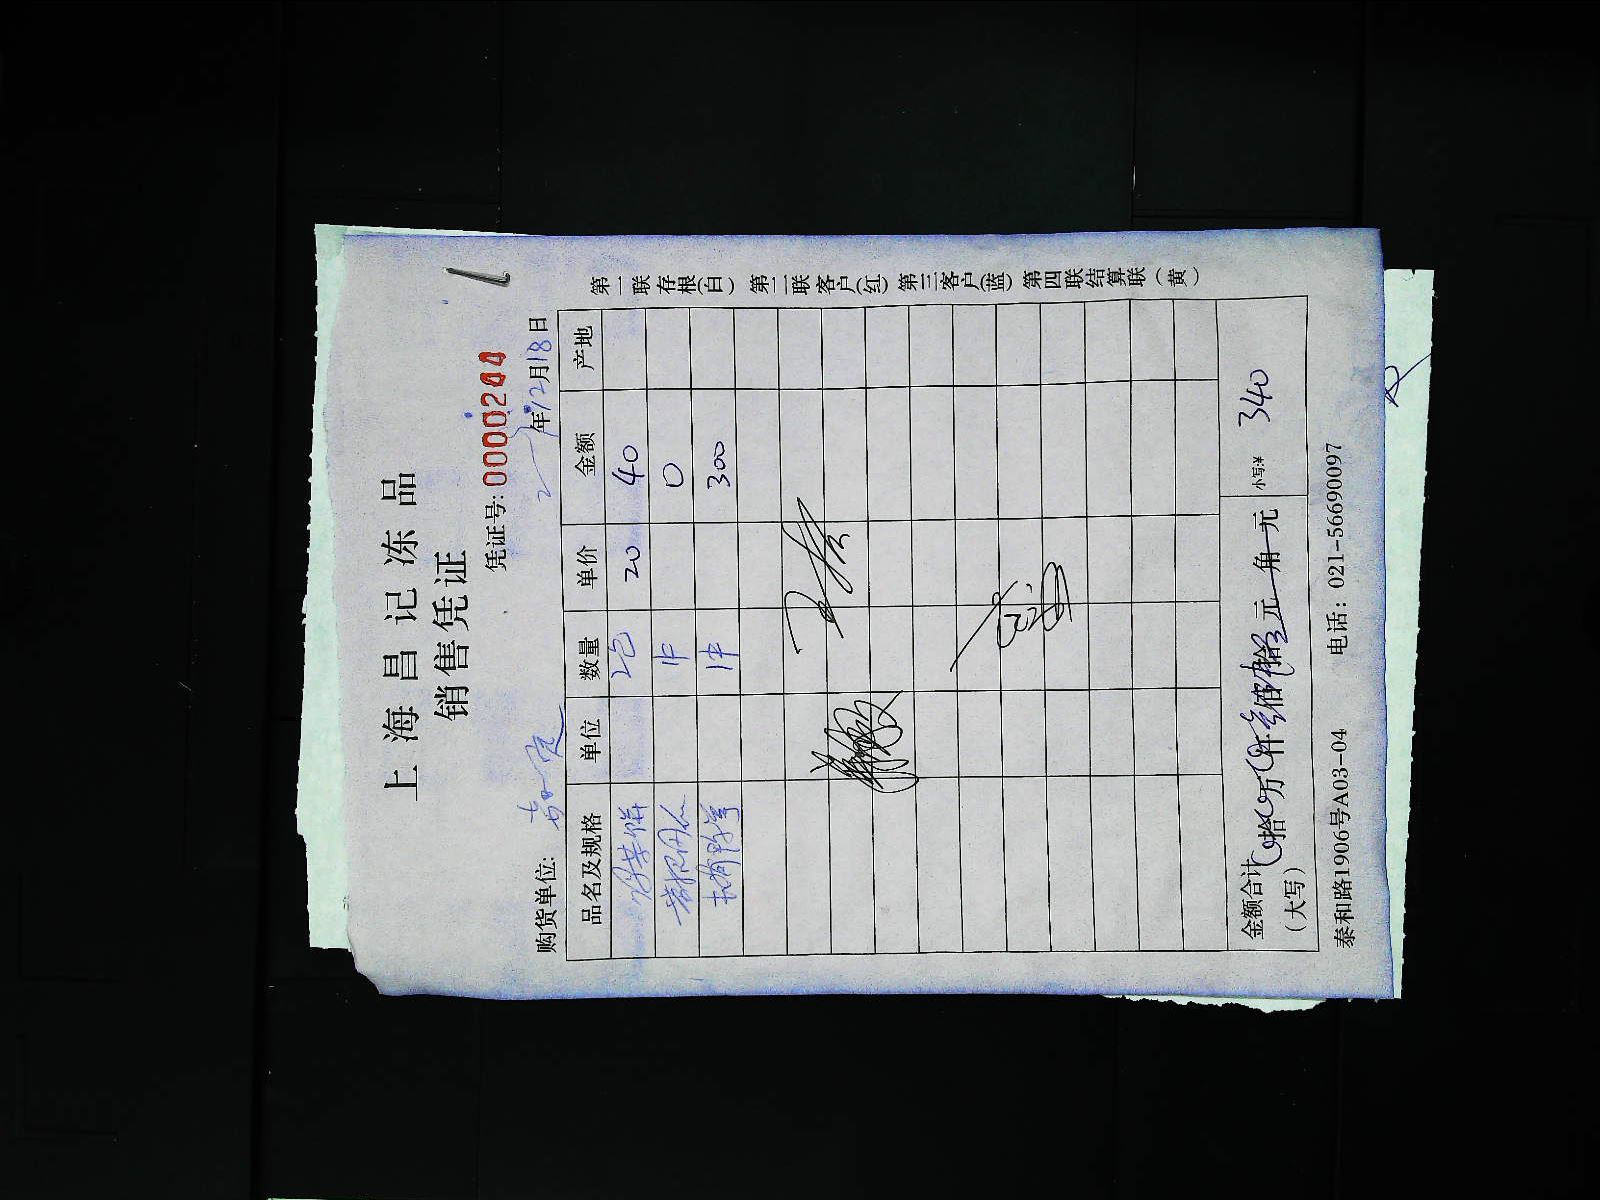 上海昌记冻品
销售凭证
凭证号: 0000244
年12月18日
购货单位:
品名及规格 单位 数量 单价 金额 产地
2包 20 40
1件 0
1件 300
金额合计 拾 万 仟 叁 佰 肆 拾 元 角 元 小写:¥ 340
(大写)
泰和路1906号A03-04 电话: 021-56690097
第一联存根(白) 第二联客户(红) 第三客户(蓝) 第四联结算联(黄)